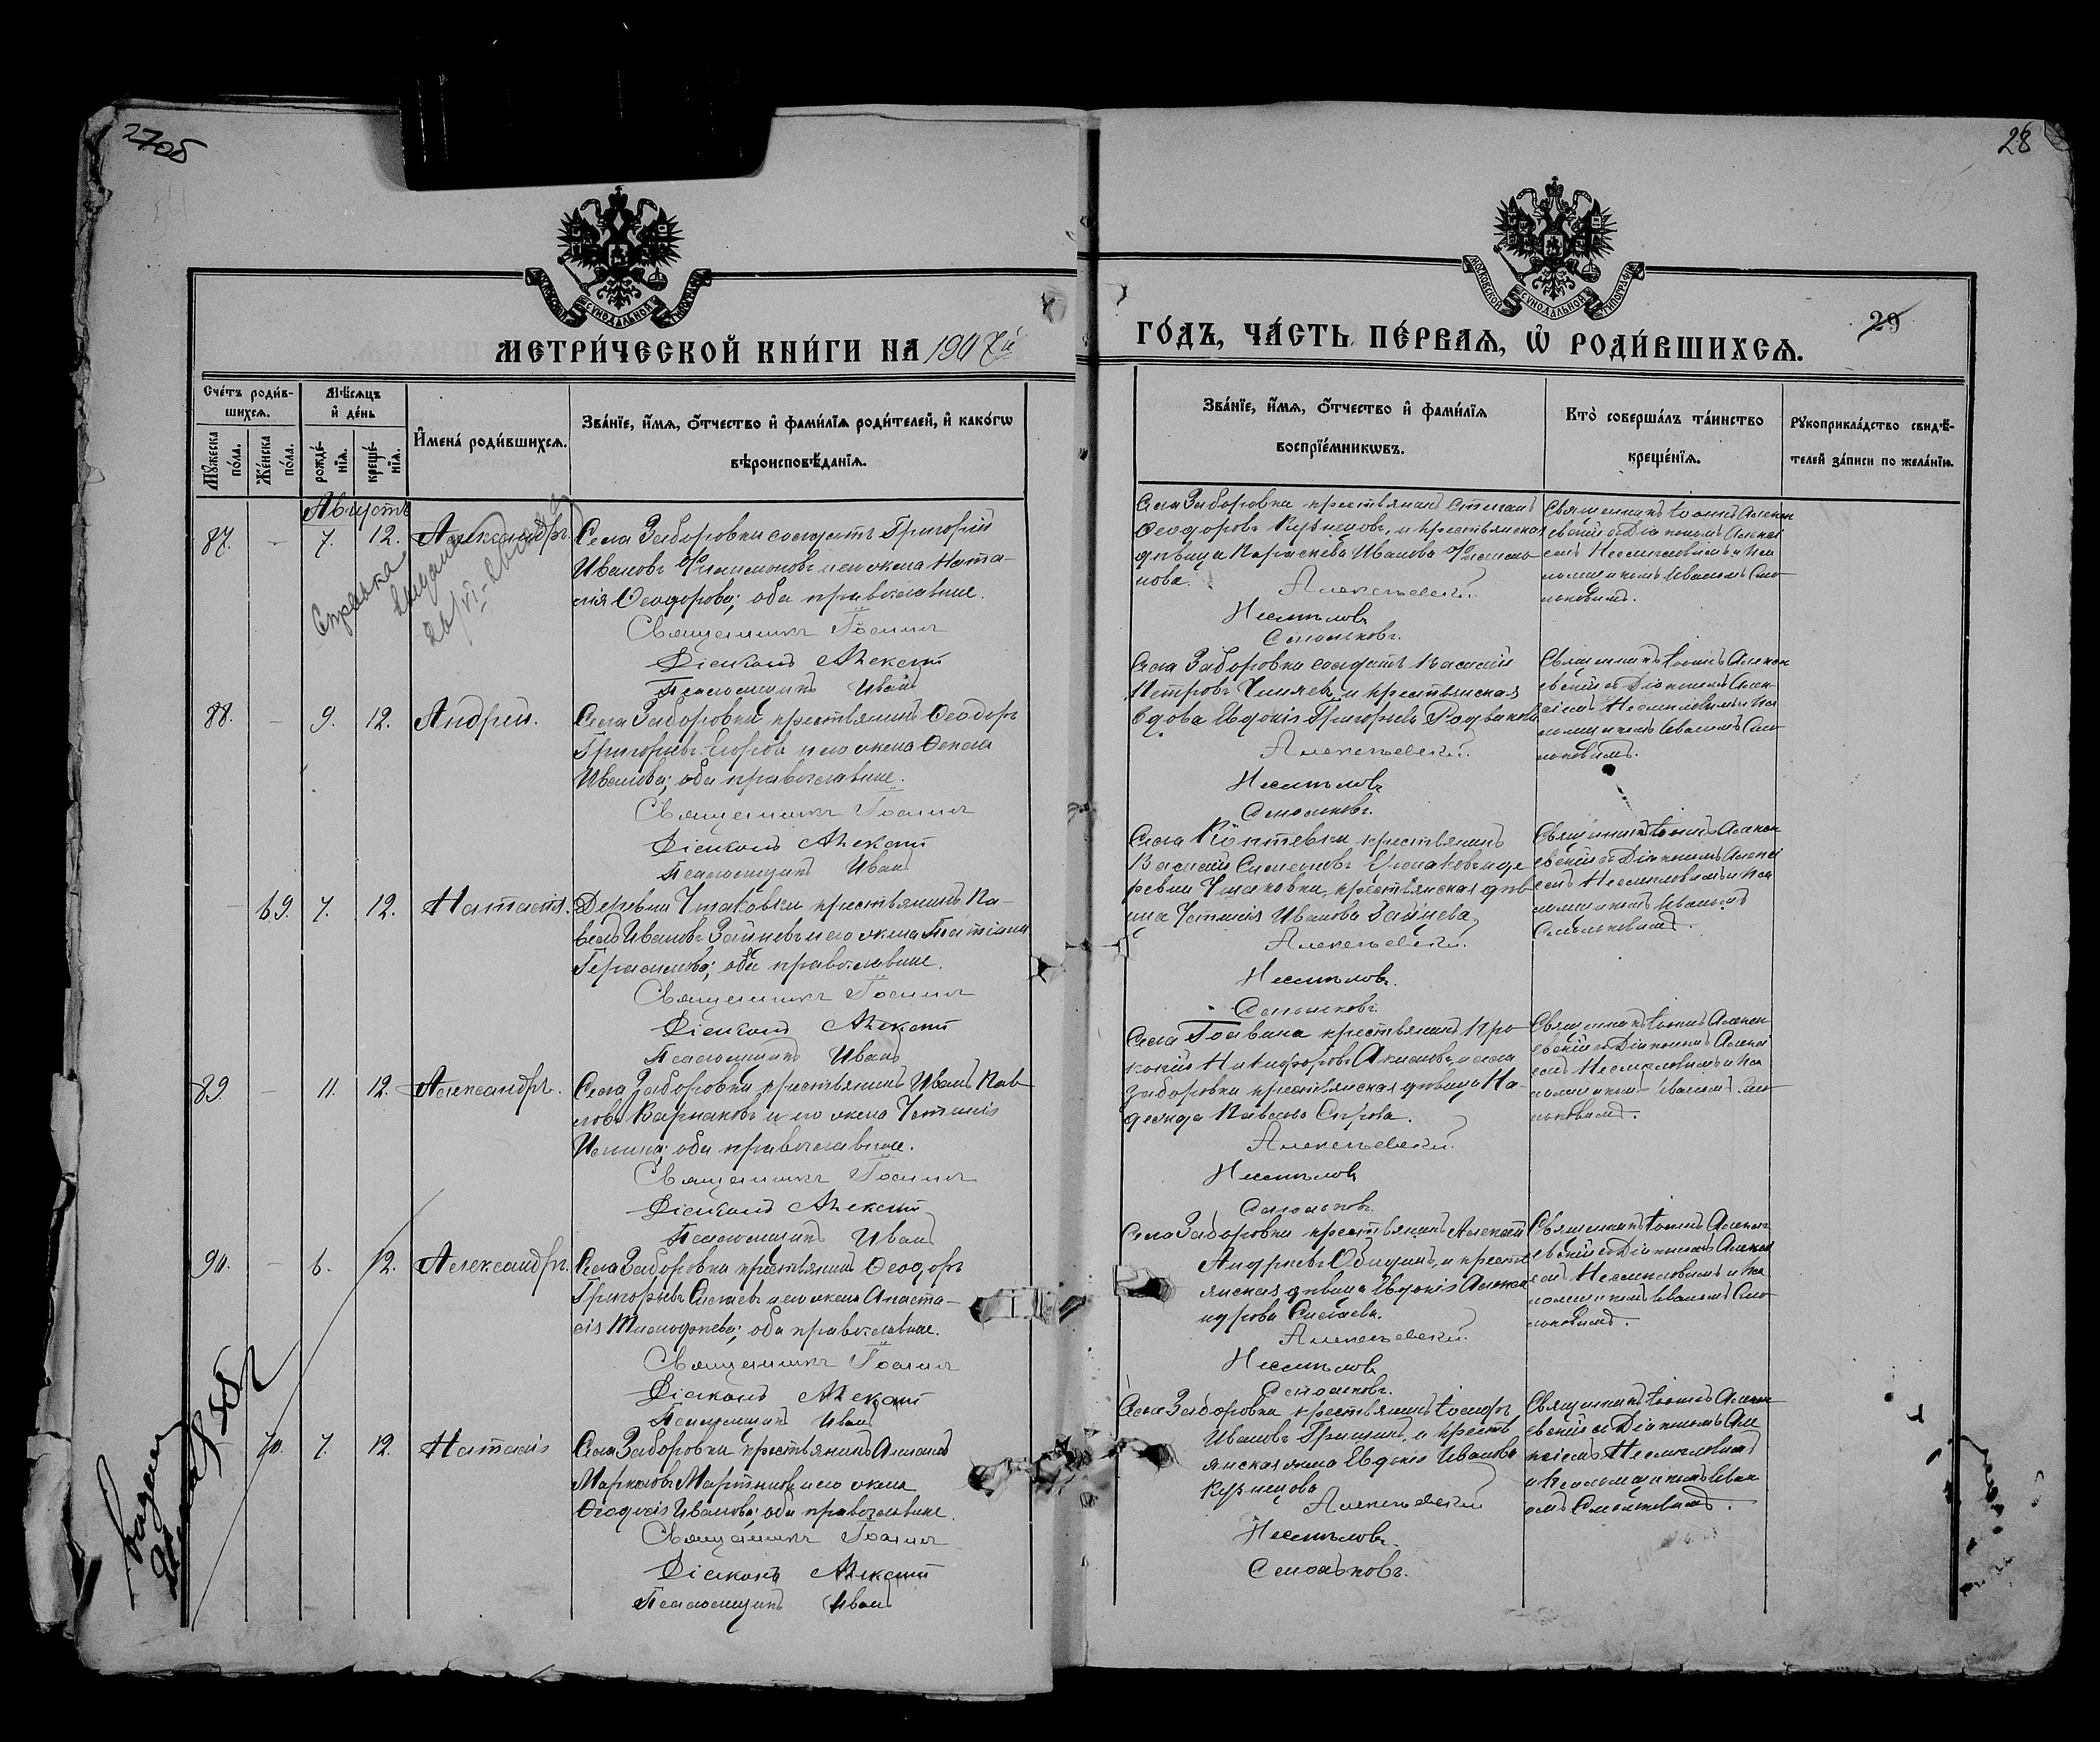 27об
28
29
МОСКОВСКОЙ СѴНОДАЛЬНОЙ ТИПОГРАФІИ
МОСКОВСКОЙ СѴНОДАЛЬНОЙ ТИПОГРАФІИ
МЕТРИ́ЧЕСКОЙ КНИ́ГИ НА 1907й
ГО́ДЪ, ЧА́СТЬ ПЕ́РВАѦ, Ѡ҆ РОДИ́ВШИХСѦ.
Сче́тъ роди́в-
шихсѧ.
Мꙋ́жеска по́ла.
Же́нска по́ла.
Мѣ́сѧцъ
и҆ де́нь
рожде́-
нїѧ.
креще́-
нїѧ.
И҆мена̀ роди́вшихсѧ.
Зва́нїе, и҆́мѧ, ѻ҆́тчество и҆ фами́лїѧ роди́телей, и҆ како́гѡ
вѣроисповѣ́данїѧ.
Зва́нїе, и҆́мѧ, ѻ҆́тчество и҆ фами́лїѧ
воспрїе́мникѡвъ.
Кто̀ соверша́лъ та́инство
креще́нїѧ.
Рꙋкоприкла́дство свидѣ́-
телей за́писи по жела́нїю.
Августъ
87. - 7. 12. Александръ.
Справка
Села Заборовки солдатъ Григорій
Ивановъ Филимоновъ и его жена Ната-
лія Ѳеодорова; оба православные.
Священникъ Іоаннъ
Діаконъ Алексій
Псаломщикъ Иванъ
Села Заборовки крестьянинъ Степанъ
Ѳеодоровъ Кузнецовъ, и крестьянская
дѣвица Параскева Иванова Филимо-
нова.
Алексѣевскій.
Несмѣловъ
Смольковъ.
Священникъ Іоаннъ Алексѣ-
евскій съ Діакономъ Алексі-
емъ Несмѣловымъ и Пса-
ломщикомъ Иваномъ Смо-
льковымъ.
88. - 9. 12. Андрей.
Села Заборовки крестьянинъ Ѳеодоръ
Григорьевъ Егоровъ и его жена Ѳекла
Иванова; оба православные.
Священникъ Іоаннъ
Діаконъ Алексій
Псаломщикъ Иванъ
Села Заборовки солдатъ Василій
Петровъ и крестьянская
вдова Евдокія Григорьева
Алексѣевскій.
Несмѣловъ
Смольковъ.
Священникъ Іоаннъ Алексѣ-
евскій съ Діакономъ Алек-
сіемъ Несмѣловымъ и Пса-
ломщикомъ Иваномъ Смо-
льковымъ.
- 69. 7. 12. Наталія.
Деревни Ушаковки крестьянинъ Па-
велъ Ивановъ Зайцевъ и его жена Татіана
Германова; оба православные.
Священникъ Іоаннъ
Діаконъ Алексій
Псаломщикъ Иванъ
Села крестьянинъ
Василій Симеоновъ и де-
ревни Ушаковки, крестьянская дѣв-
ица Устинія Иванова Зайцева
Алексѣевскій.
Несмѣловъ.
Смольковъ.
Священникъ Іоаннъ Алексѣ-
евскій съ Діакономъ Алексі-
емъ Несмѣловымъ и Пса-
ломщикомъ Иваномъ
Смольковымъ.
89. - 11. 12. Александръ.
Села Заборовки крестьянинъ Иванъ Пав-
ловъ и его жена Устинія
оба православные.
Священникъ Іоаннъ
Діаконъ Алексій
Псаломщикъ Иванъ
Села крестьянинъ Про-
копій Никифоровъ и села
Заборовки крестьянская дѣвица На-
дежда Павлова
Алексѣевскій.
Несмѣловъ
Смольковъ.
Священникъ Іоаннъ Алексѣ-
евскій съ Діакономъ Алексі-
емъ Несмѣловымъ и Пса-
ломщикомъ Иваномъ Смо-
льковымъ.
90. - 6. 12. Александръ.
Села Заборовки крестьянинъ Ѳеодоръ
Григорьевъ и его жена Анаста-
сія Тимофеева; оба православные.
Священникъ Іоаннъ
Діаконъ Алексій
Псаломщикъ Иванъ
Села Заборовки крестьянинъ Алексѣй
Андреевъ и кресть-
янская дѣвица Евдокія Алекса-
ндрова
Алексѣевскій.
Несмѣловъ
Смольковъ.
Священникъ Іоаннъ Алексѣ-
евскій съ Діакономъ Алексі-
емъ Несмѣловымъ и Пса-
ломщикомъ Иваномъ Смо-
льковымъ.
70. 7. 12. Наталія
Села Заборовки крестьянинъ
и его жена
Ѳеодосія Иванова; оба православные.
Священникъ Іоаннъ
Діаконъ Алексій
Псаломщикъ Иванъ
Села Заборовки крестьянинъ Іосифъ
Ивановъ Гришинъ, и кресть-
янская жена Евдокія Иванова
Кузнецова
Алексѣевскій
Несмѣловъ.
Смольковъ.
Священникъ Іоаннъ Алексѣ-
евскій съ Діакономъ Але-
ксіемъ Несмѣловымъ
и Псаломщикомъ Иван-
омъ Смольковымъ.